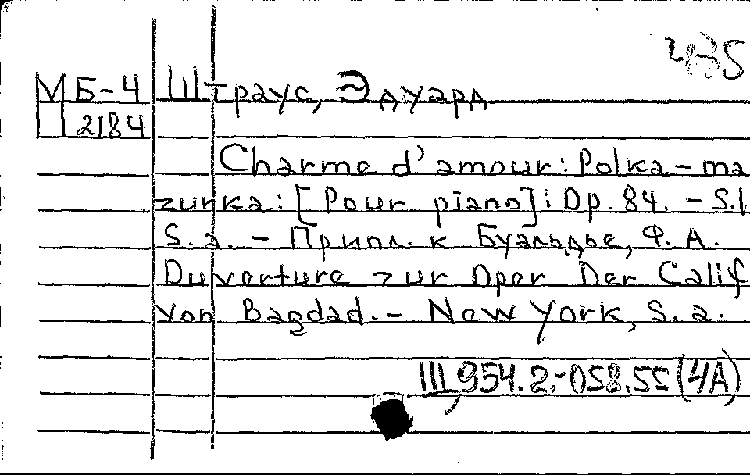 435
МБ-4 Штраус, Эдуард
2184
Charme d'amour: Polka-ma
zurka: [Pour piano]: Op. 84. - S.l.
S. a. - Припл. к Буальдье, Ф. А.
Ouverture zur Oper Der Calif
von Bagdad. - New York, S. a.
Ш,954.2,-058.55(4А)